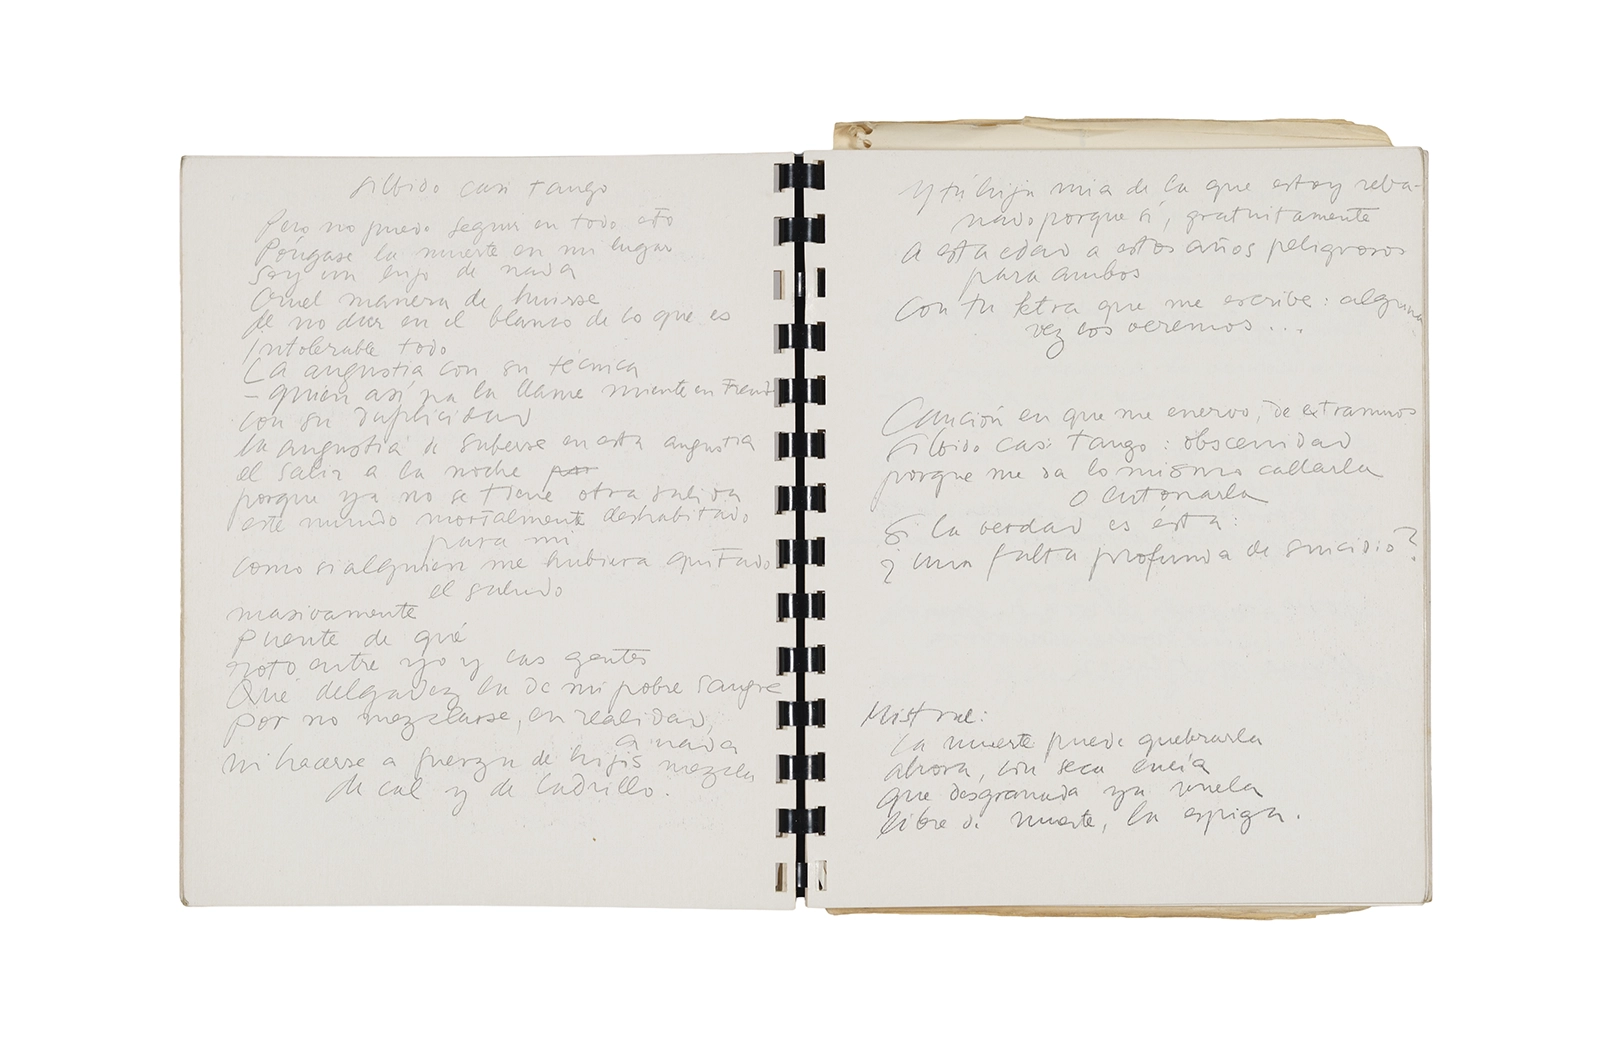 Silbido casi tango
Pero no puedo seguir en todo esto
Póngase la muerte en mi lugar
Soy un hijo de nada
Cruel manera de huirse
de no dar en el blanco de lo que es
Intolerable todo
La angustia con su técnica
– quien así ya la llame miente en
con su duplicidad
la angustia de saberse en esta angustia
el salir a la noche por
porque ya no se tiene otra salida
este mundo mortalmente deshabitado
para mí
como si alguien me hubiera quitado
el saludo
masivamente
Puente de qué
roto entre yo y las gentes
Qué delgadez la de mi pobre sangre
por no mezclarse, en realidad,
a nada
ni hacerse a fuerza de hijos mezcla
de cal y de ladrillo.
Y tú hija mía de la que estoy reba-
nado porque sí, gratuitamente
a esta edad a estos años peligrosos
para ambos
Con tu letra que me escribe: alguna
vez los veremos...
Canción en que me enervo, de extramuros
Silbido casi tango: obscenidad
porque me da lo mismo callarla
o entonarla
Si la verdad es ésta:
¿una falta profunda de suicidio?
Mistral:
La muerte puede quebrarla
ahora, con seca encía
que desgranada ya vuela
libre de muerte, la espiga.